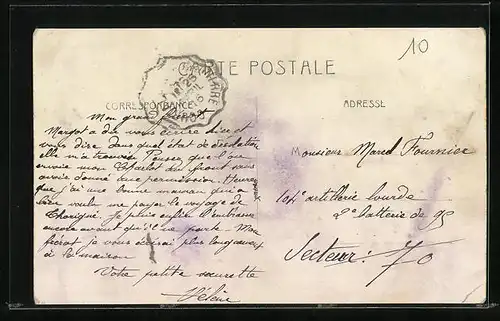 10
CARTE POSTALE
CORRESPONDANCE
ADRESSE
Mon grand frérot
Margot a dû vous écrire hier et
vous dire dans quel état de désolation
elle m'a trouvée. Pensez que l'on
envoie mon Charlot au front sans
avoir donné de permission. Heureuse
que j'ai une bonne maman qui a
bien voulu me payer le voyage de
je puis enfin l'embrasser
encore avant qu'il ne parte. Mon
frérot je vous écrirai plus longuement
à la maison
Votre petite sœurette
Hélène
Monsieur Marcel Fournier
104e artillerie lourde
2e batterie de 95
Secteur : 70